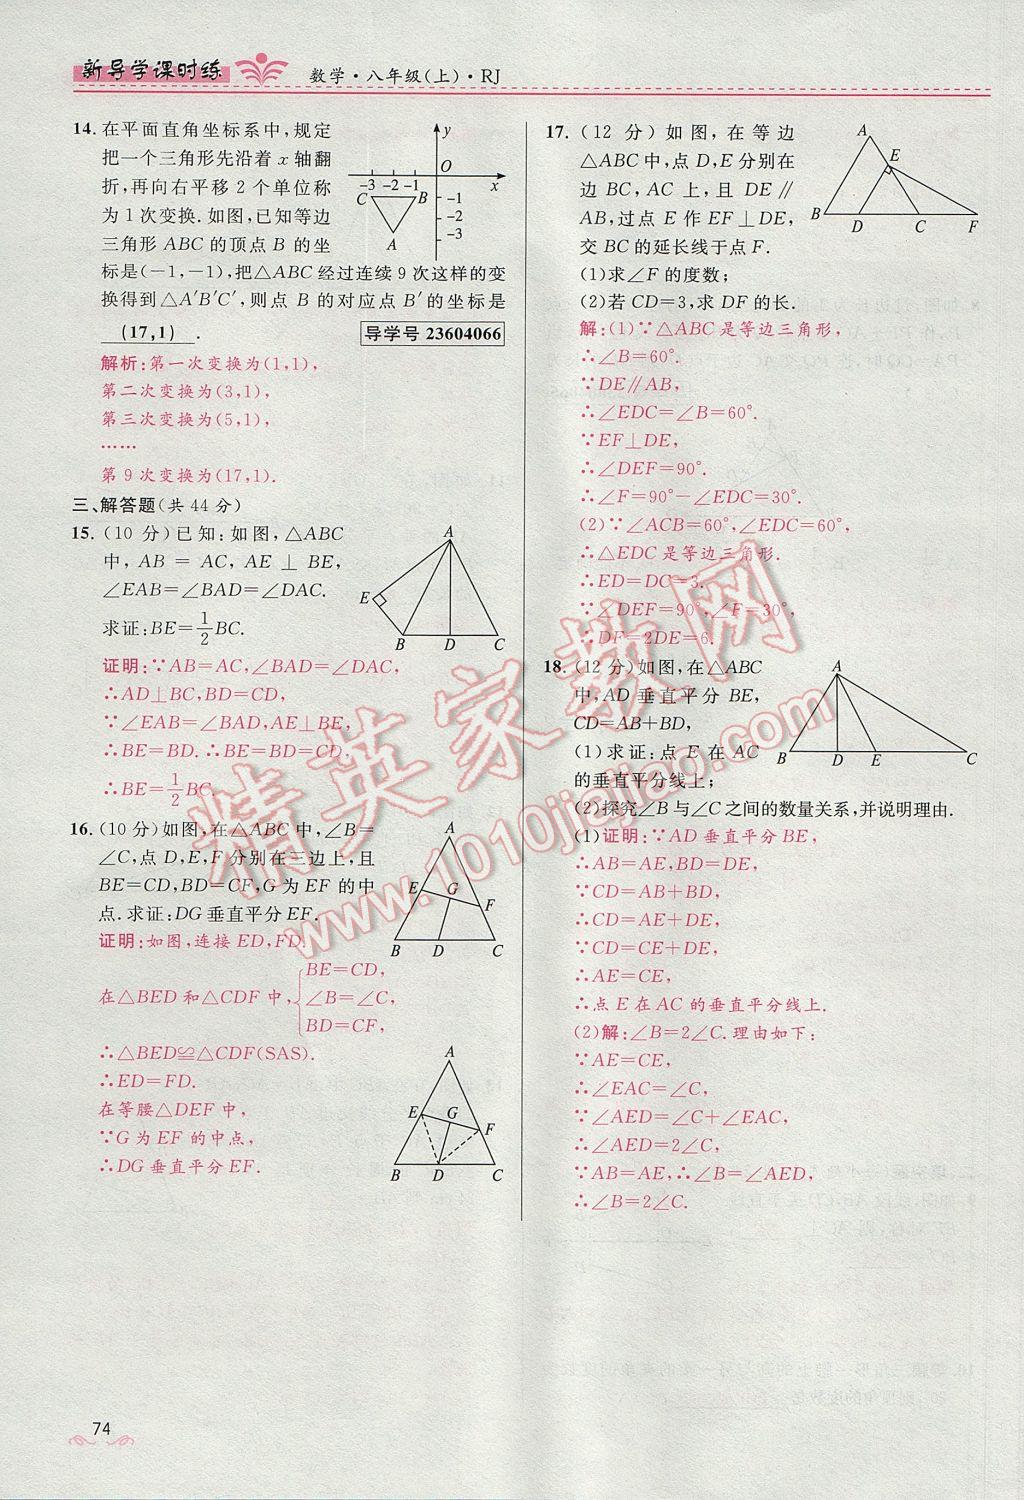 新导学课时练
数学·八年级(上)·RJ
14.在平面直角坐标系中,规定
把一个三角形先沿着 x 轴翻
折,再向右平移 2 个单位称
为 1 次变换.如图,已知等边
三角形 ABC 的顶点 B 的坐
标是(-1,-1),把△ABC 经过连续 9 次这样的变
换得到△A′B′C′,则点 B 的对应点 B′的坐标是
(17,1).
导学号 23604066
y
O
x
-3 -2 -1
C B
-1
-2
-3
A
解析:第一次变换为(1,1),
第二次变换为(3,1),
第三次变换为(5,1),
……
第 9 次变换为(17,1).
三、解答题(共 44 分)
15.(10 分)已知:如图,△ABC
中,AB = AC, AE ⊥ BE,
∠EAB=∠BAD=∠DAC.
求证:BE=1/2BC.
A
E
B D C
证明:∵AB=AC,∠BAD=∠DAC,
∴AD⊥BC,BD=CD,
∵∠EAB=∠BAD,AE⊥BE,
∴BE=BD.∴BE=BD=CD,
∴BE=1/2BC.
16.(10 分)如图,在△ABC 中,∠B=
∠C,点 D,E,F 分别在三边上,且
BE=CD,BD=CF,G 为 EF 的中
点.求证:DG 垂直平分 EF.
A
E G
F
B D C
证明:如图,连接 ED,FD.
BE=CD,
在△BED 和△CDF 中, ∠B=∠C,
BD=CF,
∴△BED≌△CDF(SAS).
∴ED=FD.
在等腰△DEF 中,
∵G 为 EF 的中点,
∴DG 垂直平分 EF.
A
E G
F
B D C
17.(12 分)如图,在等边
△ABC 中,点 D,E 分别在
边 BC,AC 上,且 DE∥
AB,过点 E 作 EF⊥DE,
交 BC 的延长线于点 F.
(1)求∠F 的度数;
(2)若 CD=3,求 DF 的长.
A
E
B D C F
解:(1)∵△ABC 是等边三角形,
∴∠B=60°.
∵DE∥AB,
∴∠EDC=∠B=60°.
∵EF⊥DE,
∴∠DEF=90°.
∴∠F=90°-∠EDC=30°.
(2)∵∠ACB=60°,∠EDC=60°,
∴△EDC 是等边三角形.
∴ED=DC=3.
∵∠DEF=90°,∠F=30°,
∴DF=2DE=6.
18.(12 分)如图,在△ABC
中,AD 垂直平分 BE,
CD=AB+BD,
(1)求证:点 E 在 AC
的垂直平分线上;
(2)探究∠B 与∠C 之间的数量关系,并说明理由.
A
B D E C
(1)证明:∵AD 垂直平分 BE,
∴AB=AE,BD=DE,
∵CD=AB+BD,
∴CD=AE+DE,
∵CD=CE+DE,
∴AE=CE,
∴点 E 在 AC 的垂直平分线上.
(2)解:∠B=2∠C.理由如下:
∵AE=CE,
∴∠EAC=∠C,
∵∠AED=∠C+∠EAC,
∴∠AED=2∠C,
∵AB=AE,∴∠B=∠AED,
∴∠B=2∠C.
精英家教网
www.1010jiajiao.com
74